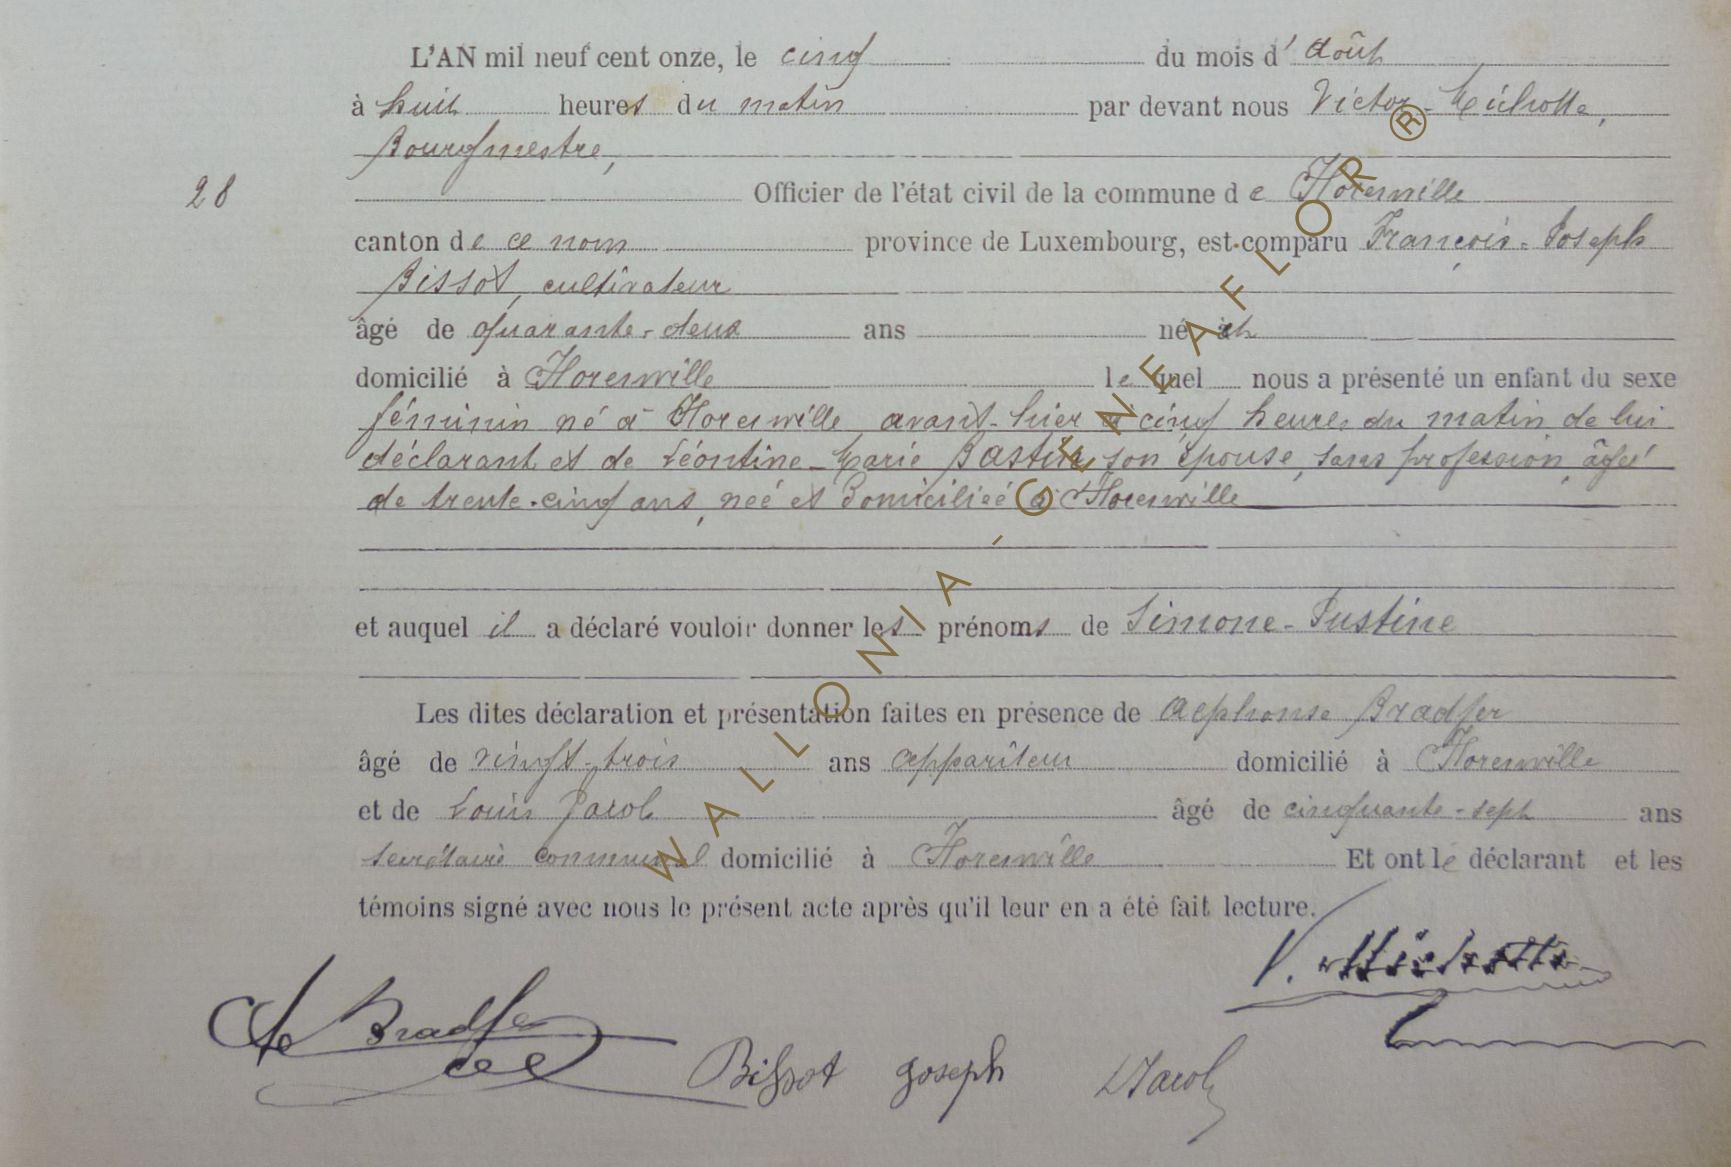 L'AN mil neuf cent onze, le cinq du mois d'août
à huit heures du matin par devant nous Victor-Michotte,
Bourgmestre,
28 Officier de l'état civil de la commune de Florenville
canton de ce nom province de Luxembourg, est comparu François-Joseph
Bissot, cultivateur
âgé de quarante-deux ans né et
domicilié à Florenville lequel nous a présenté un enfant du sexe
féminin né à Florenville avant-hier à cinq heures du matin de lui
déclarant et de Léontine-Marie Bastin son épouse, sans profession, âgée
de trente-cinq ans, née et domiciliée à Florenville
et auquel il a déclaré vouloir donner les prénoms de Simone-Justine
Les dites déclaration et présentation faites en présence de Alphonse Bradfer
âgé de vingt-trois ans appariteur domicilié à Florenville
et de Louis Jacob âgé de cinquante-sept ans
secrétaire communal domicilié à Florenville Et ont le déclarant et les
témoins signé avec nous le présent acte après qu'il leur en a été fait lecture.
V. Michotte
Bradfer
Bissot Joseph LJacob
WALLONIA-GENEAFLOR ®